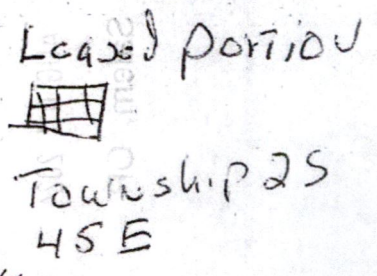 Leased portion
Township 2S
45E